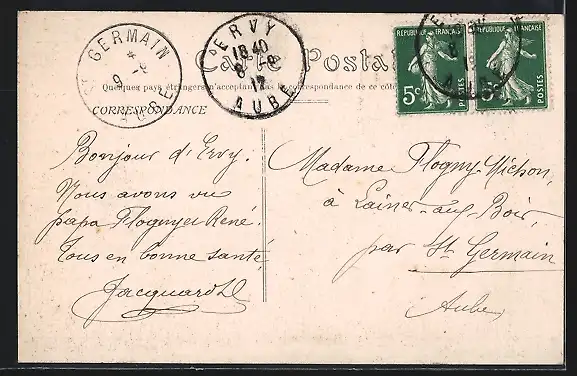 ST GERMAIN
9 -8
AUBE
ERVY
18 40
8 -8
12
AUBE
Carte Postale
REPUBLIQUE FRANÇAISE
5c
POSTES
REPUBLIQUE FRANÇAISE
POSTES
Quelques pays étrangers n'acceptant pas la correspondance de ce côté
CORRESPONDANCE
Bonjour d'Ervy.
Nous avons vu
papa Flogny et René.
Tous en bonne santé,
Madame Flogny-Michon,
à Laines-aux-Bois,
par St Germain
Aube,